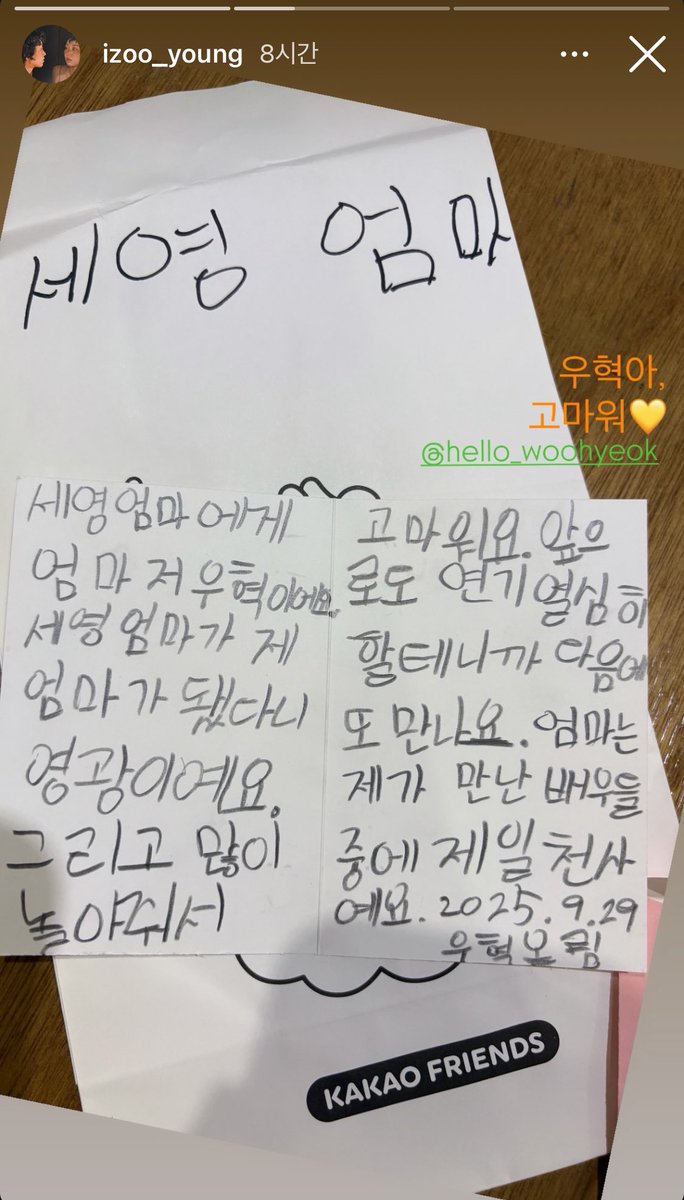 izoo_young 8시간
세영 엄마
우혁아,
고마워💛
@hello_woohyeok
세영엄마에게
엄마 저우혁이에요.
세영엄마가 제
엄마가 됐다니
영광이예요.
그리고 많이
놀아줘서
고마워요. 앞으
로도 연기 열심히
할테니까 다음에
또 만나요. 엄마는
제가 만난 배우들
중에 제일 천사
예요. 2025.9.29
우혁 올림
KAKAO FRIENDS